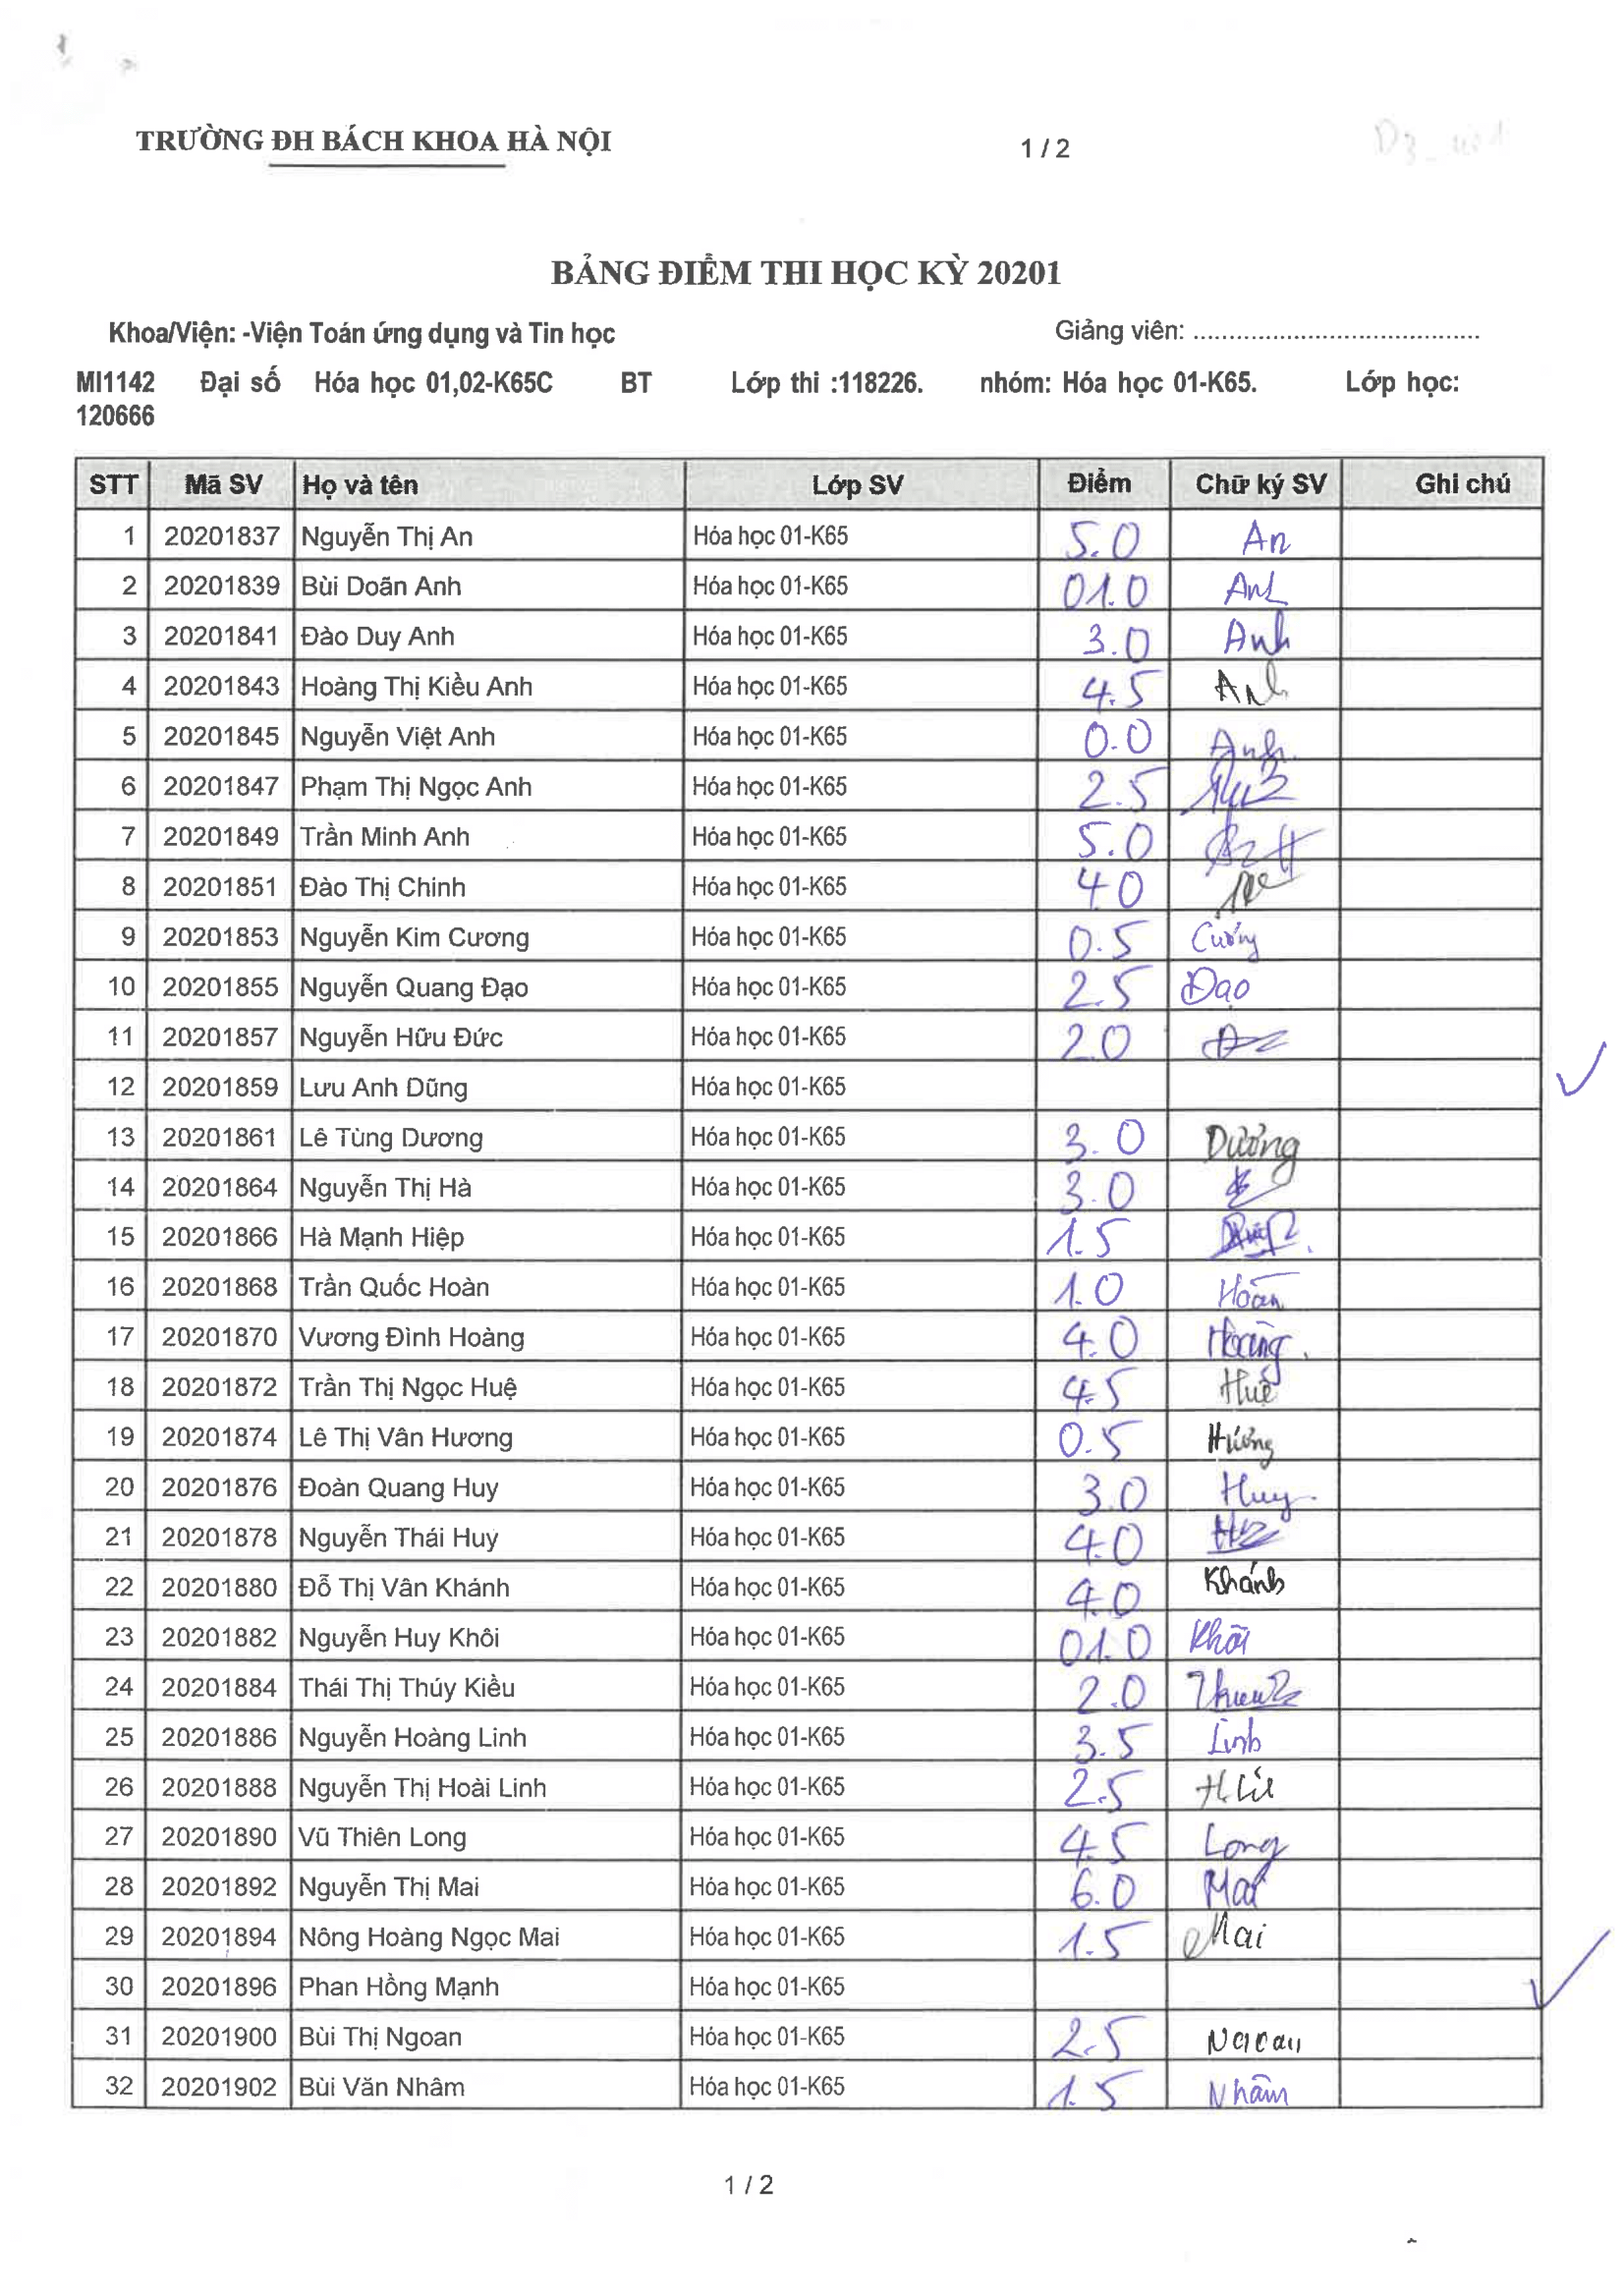 TRƯỜNG ĐH BÁCH KHOA HÀ NỘI 1 / 2
BẢNG ĐIỂM THI HỌC KỲ 20201
Khoa/Viện: -Viện Toán ứng dụng và Tin học Giảng viên: ........................................
MI1142 Đại số Hóa học 01,02-K65C BT Lớp thi :118226. nhóm: Hóa học 01-K65. Lớp học:
120666
STT Mã SV Họ và tên Lớp SV Điểm Chữ ký SV Ghi chú
1 20201837 Nguyễn Thị An Hóa học 01-K65 5.0 An
2 20201839 Bùi Doãn Anh Hóa học 01-K65 01.0 Anh
3 20201841 Đào Duy Anh Hóa học 01-K65 3.0 Anh
4 20201843 Hoàng Thị Kiều Anh Hóa học 01-K65 4.5 Anh
5 20201845 Nguyễn Việt Anh Hóa học 01-K65 0.0 Anh
6 20201847 Phạm Thị Ngọc Anh Hóa học 01-K65 2.5
7 20201849 Trần Minh Anh Hóa học 01-K65 5.0
8 20201851 Đào Thị Chinh Hóa học 01-K65 4.0
9 20201853 Nguyễn Kim Cương Hóa học 01-K65 0.5 Cương
10 20201855 Nguyễn Quang Đạo Hóa học 01-K65 2.5 Đạo
11 20201857 Nguyễn Hữu Đức Hóa học 01-K65 2.0
12 20201859 Lưu Anh Dũng Hóa học 01-K65
13 20201861 Lê Tùng Dương Hóa học 01-K65 3.0 Dương
14 20201864 Nguyễn Thị Hà Hóa học 01-K65 3.0
15 20201866 Hà Mạnh Hiệp Hóa học 01-K65 1.5
16 20201868 Trần Quốc Hoàn Hóa học 01-K65 1.0 Hoàn
17 20201870 Vương Đình Hoàng Hóa học 01-K65 4.0 Hoàng
18 20201872 Trần Thị Ngọc Huệ Hóa học 01-K65 4.5 Huệ
19 20201874 Lê Thị Vân Hương Hóa học 01-K65 0.5 Hương
20 20201876 Đoàn Quang Huy Hóa học 01-K65 3.0 Huy
21 20201878 Nguyễn Thái Huy Hóa học 01-K65 4.0
22 20201880 Đỗ Thị Vân Khánh Hóa học 01-K65 4.0 Khánh
23 20201882 Nguyễn Huy Khôi Hóa học 01-K65 01.0 Khôi
24 20201884 Thái Thị Thúy Kiều Hóa học 01-K65 2.0
25 20201886 Nguyễn Hoàng Linh Hóa học 01-K65 3.5 Linh
26 20201888 Nguyễn Thị Hoài Linh Hóa học 01-K65 2.5
27 20201890 Vũ Thiên Long Hóa học 01-K65 4.5 Long
28 20201892 Nguyễn Thị Mai Hóa học 01-K65 6.0 Mai
29 20201894 Nông Hoàng Ngọc Mai Hóa học 01-K65 1.5 Mai
30 20201896 Phan Hồng Mạnh Hóa học 01-K65
31 20201900 Bùi Thị Ngoan Hóa học 01-K65 2.5 Ngoan
32 20201902 Bùi Văn Nhâm Hóa học 01-K65 1.5 Nhâm
1 / 2